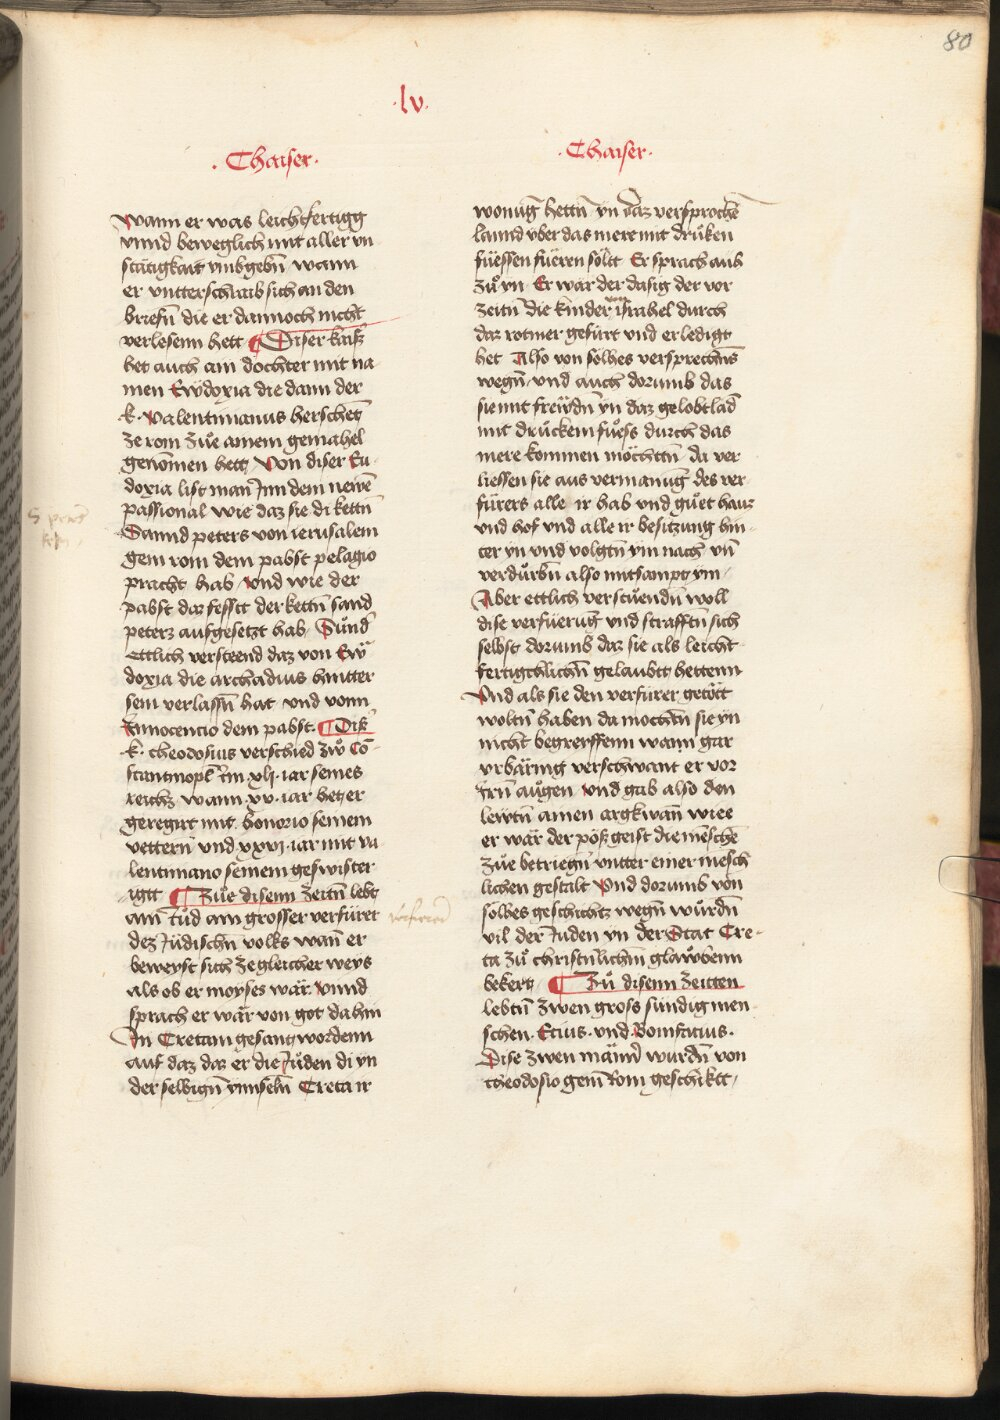 80
.lv.
.Chaiser.
wann er was leichtfertigg
vnnd beweglich mit aller vn
stätigkait vmbgebn̄ wann
er vntterschraib sich an den
briefn̄ die er dannoch nicht
verlesenn hett ¶ Diser kaiß
het auch ain dochter mit na
men Ewdoxia die dann der
.k. valentinianus herschet
ze rom zuͤe ainem gemahel
genomen hett Von diser Eu
doxia list man Inn dem newē
passional wie daz sie di kettn̄
Sannd peters von ierusalem
gein rom dem pabst pelagio
pracht hab vnd wie der
pabst daz fesst der kettn̄ sand
peterz aufgesetzt hab Suͦnd
ettlich versteend daz von Ew
doxia die archadius hintter
sein verlassn̄ hat vnd vonn
Innocencio dem pabst. ¶ Diß
.k. theodosius verschied zẘ Co-
stantinopl̄ Im xlj. iar seines
reichz wann xv. iar het er
geregirt mit honorio seinem
vettern̄ vnd xxvj iar mit va
lentiniano seinem geswister
igtt ¶ Zuͤe disenn zeitn̄ lebt
ain iud ain grosser verfürer
dez iüdischn̄ volks wan̄ er
beweyst sich ze gleicher weys
als ob er moyses wär vnnd
sprach er wär von got dahin
In Cretam gesanngt wordenn
auf daz daz er die Juden di yn
der selbign̄ ynnseln̄ Creta ir
.Chaiser.
wonuḡ hettn̄ yn daz versprochē
lannd vber das mere mit drüken
füessen füeren söltt Er sprach aus
zuͦ yn Er wär der dasig der vor
zeitn̄ die kinder von israhel durch
daz rotmer gefürt vnd erledigt
het Also von solhes versprechn̄s
wegn̄ vnd auch dorumb das
sie mit freẅdn̄ yn daz gelobt lād
mit drückem fuͤess durch das
mere kommen möchttn̄ da ver
liessen sie aus vermanuḡ des ver
fürers alle ir hab vnd guͤet hauz
vnd hof vnd alle ir besitzung hin
ter yn vnd volgtn̄ ym nach vn̄
verdürbn̄ also mitsampt ym
Aber ettlich verstuͤendn̄ woll
dise verfüeruḡ vnd strafftn̄ sich
selbst dorumb daz sie als leicht
fertigchlichn̄ gelaubtt hettenn
Vnd als sie den verfürer getött
woltn̄ haben da mochtn̄ sie yn
nicht begreyffenn wann gar
vrbäring verschwant er vor
irn̄ auͦgen vnd gab also den
lewtn̄ ainen argkwan̄ wiee
er wär der pöß geist die mēschē
zuͤe betriegn̄ vntter einer mēsch
lichen gestalt Vnd dorumb von
solhes geschichtz wegn̄ wuͦrdn̄
vil der Juden yn der Stat Cre-
ta zuͦ christn̄lichm̄ glawbenn
bekert ¶ Zuͦ disenn zeitten
lebtn̄ zwen gross sündig men
schen. Ecius. vnd Bonifacius.
Dise zwen män̄r wurdn̄ von
theodosio gein̄ Rom geschiktt